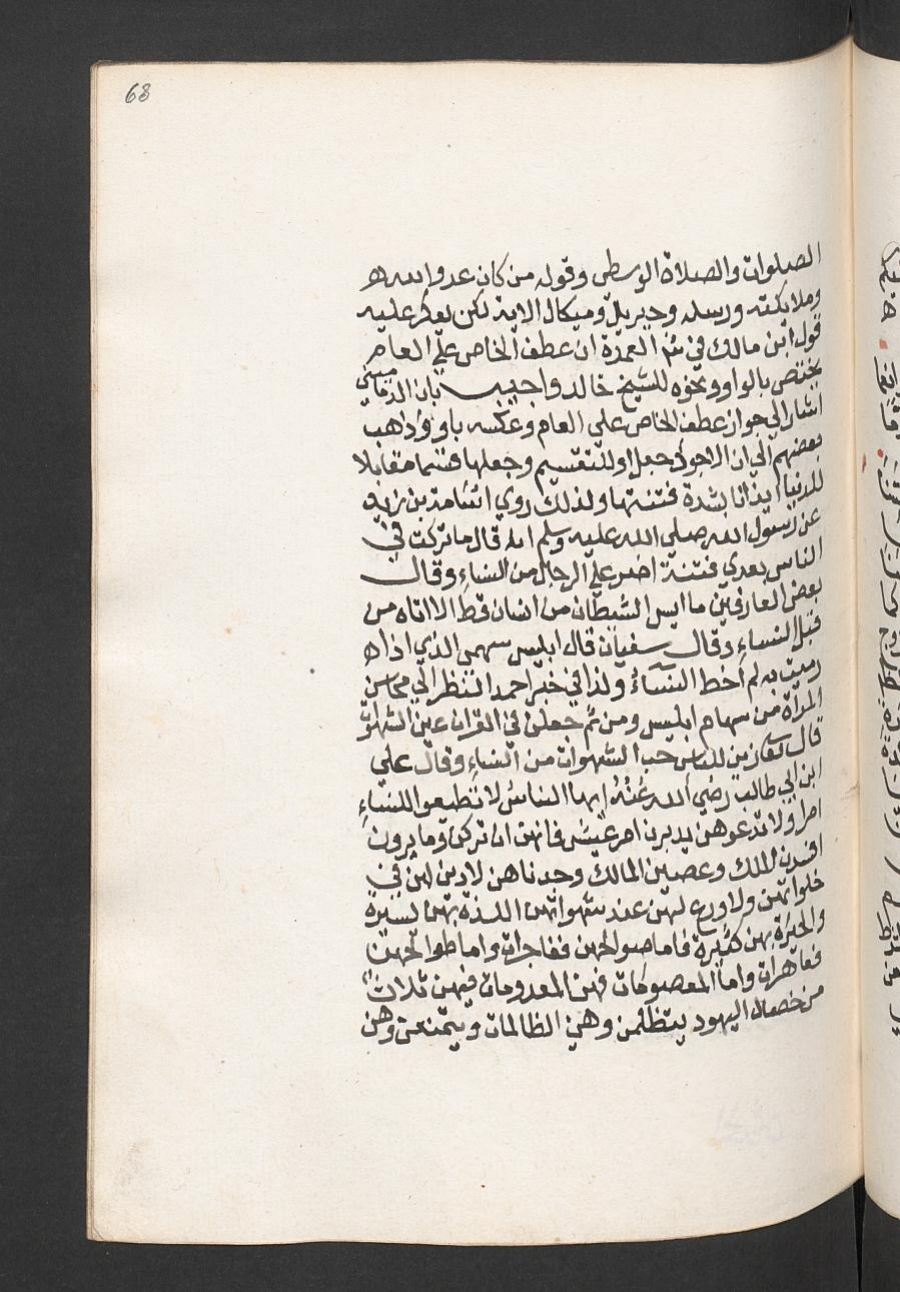 68
الصلوات والصلاة الوسطى وقوله من كان عدوا لله
وملايكته ورسله وجبريل وميكال الاية لكن يعكر عليه
قول ابن مالك في شرح العمدة ان عطف الخاص على العام
يختص بالواو ونحوه للشيخ خالد واجيب بان الدماميني
اشار الى جواز عطف الخاص على العام وعكسه باو وذهب
بعضهم الى ان الاجود جعل او للتقسيم وجعلها قسما مقابلا
للدنيا ايذانا بشدة فتنتها ولذلك روي اسامة بن زيد
عن رسول الله صلى الله عليه وسلم انه قال ما تركت في
الناس بعدي فتنة اضر على الرجال من النساء وقال
بعض العارفين ما ايس الشيطان من انسان قط الا اتاه من
قبل النساء وقال سفيان قال ابليس سهمي الذي اذا
رميت به لم اخط النساء ولذا في خبر احمد النظر الى محاسن
المراة من سهام ابليس ومن ثم جعلن في القران عين الشهوات
قال تعالى زين للناس حب الشهوات من النساء وقال علي
ابن ابي طالب رضي الله عنه ايها الناس لا تطيعوا للنساء
امرا ولا تدعوهن يدبرن امر عيش فانهن ان تركن وما يرون
افسدن الملك وعصين المالك وجدناهن لا دين لهن في
خلواتهن ولا ورع لهن عند شهواتهن اللذة بهن يسيرة
والحيرة بهن كثيرة فاما صوالحهن ففاجرات واما طوالحهن
فعاهرات واما المعصومات فهن المعدومات فيهن ثلاث
من خصال اليهود يتظلمن وهن الظالمات ويتمنعن وهن